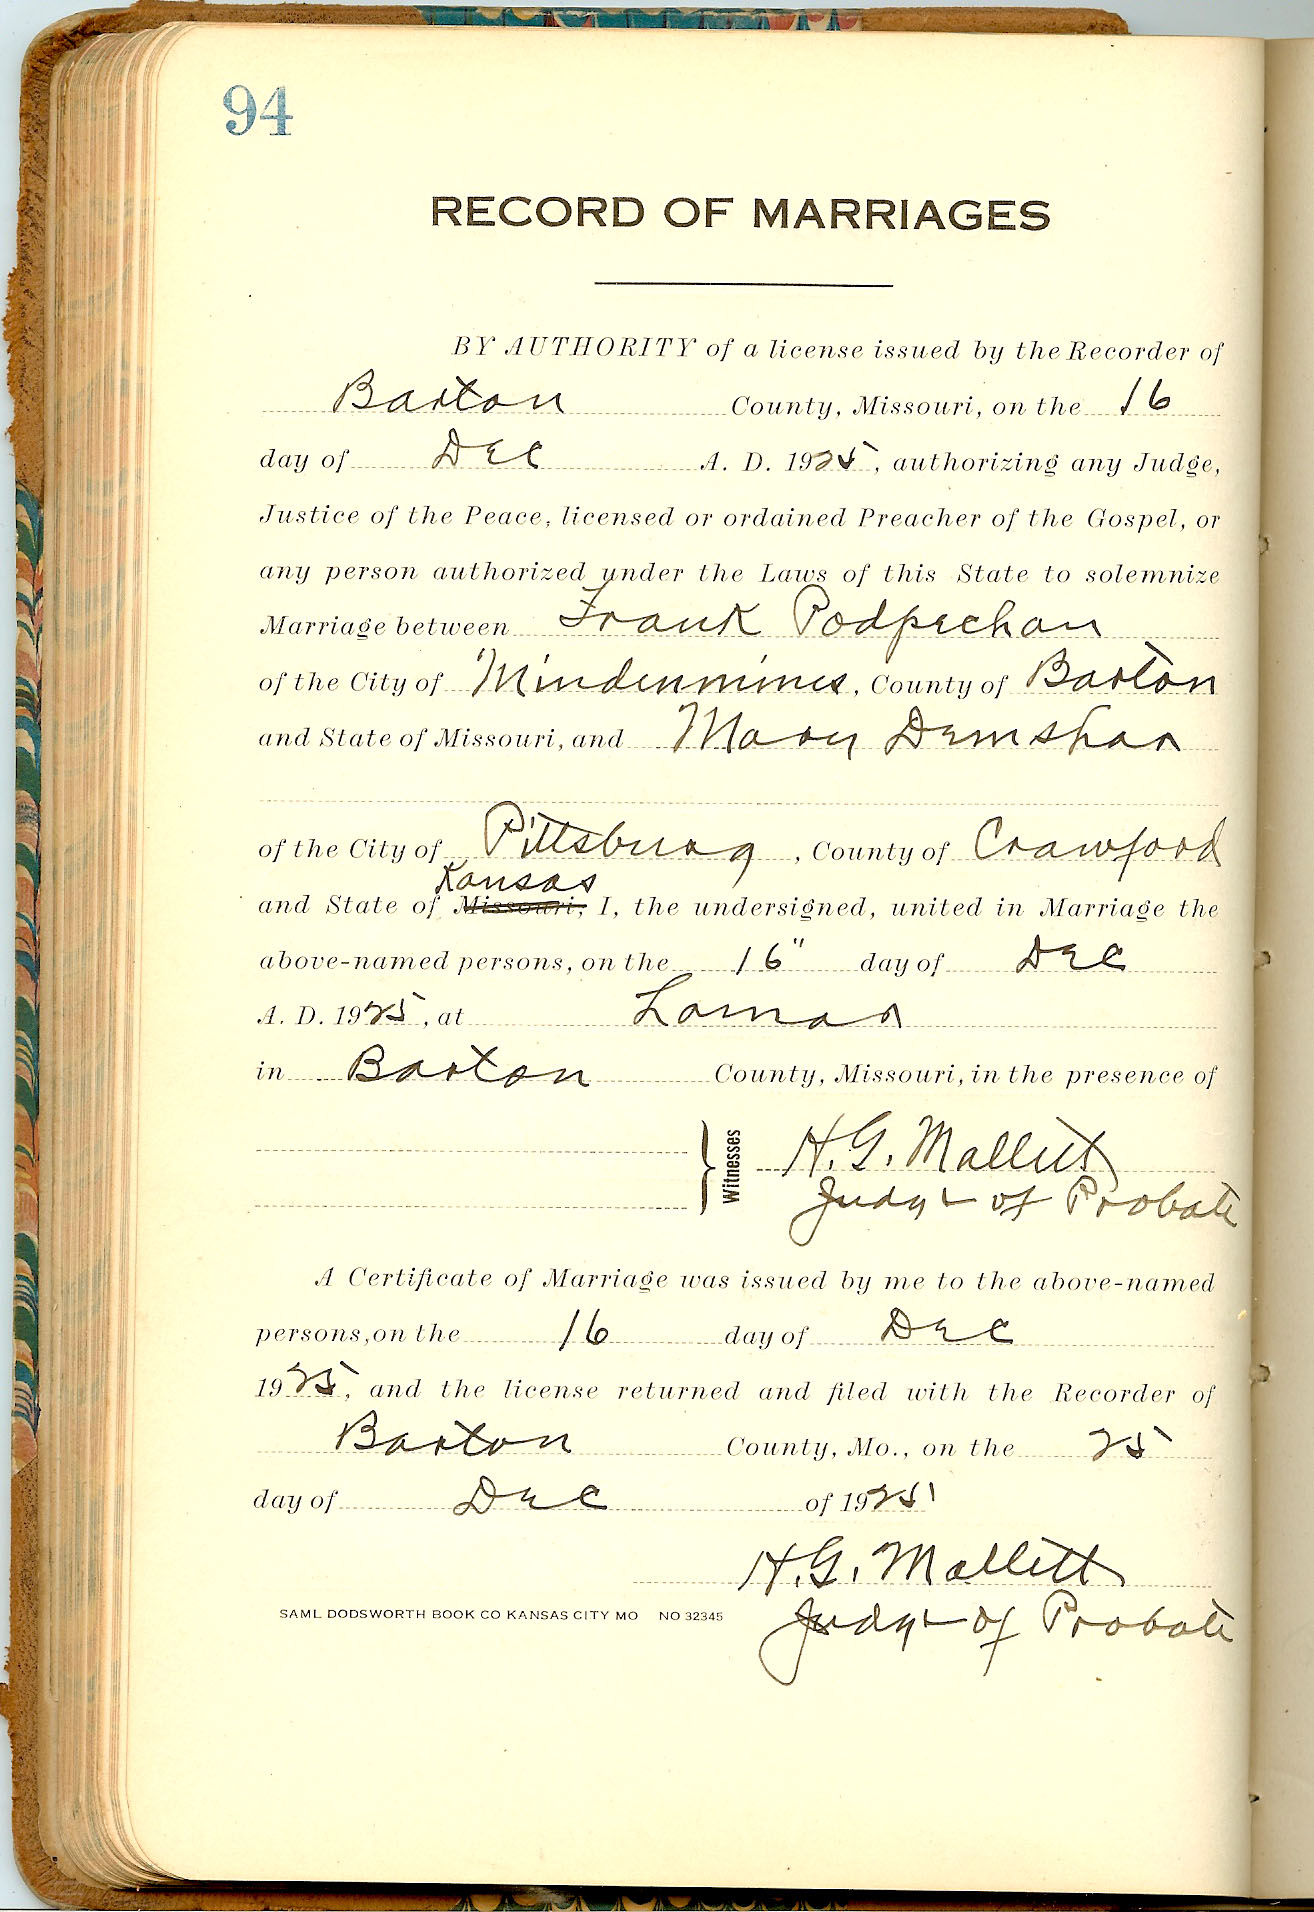 94
RECORD OF MARRIAGES
BY AUTHORITY of a license issued by the Recorder of
Barton County, Missouri, on the 16
day of Dec A. D. 1925, authorizing any Judge,
Justice of the Peace, licensed or ordained Preacher of the Gospel, or
any person authorized under the Laws of this State to solemnize
Marriage between Frank Podpechan
of the City of Mindenmines, County of Barton
and State of Missouri, and Mary Demshar
of the City of Pittsburg, County of Crawford
Kansas
and State of Missouri, I, the undersigned, united in Marriage the
above-named persons, on the 16" day of Dec
A. D. 1925, at Lamar
in Barton County, Missouri, in the presence of
Witnesses H. G. Mallett
Judge of Probate
A Certificate of Marriage was issued by me to the above-named
persons, on the 16 day of Dec
1925, and the license returned and filed with the Recorder of
Barton County, Mo., on the 25
day of Dec of 1925
H. G. Mallett
SAML DODSWORTH BOOK CO KANSAS CITY MO NO 32345 Judge of Probate